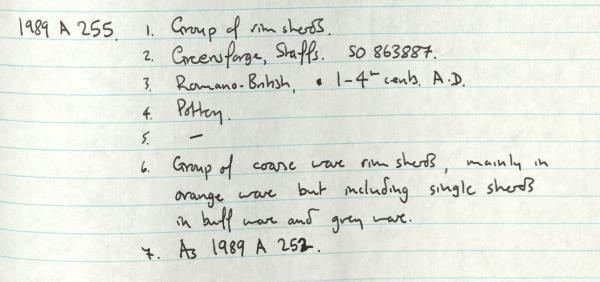 1989 A 255. 1. Group of rim sherds.
2. Greensforge, Staffs. SO 863887.
3. Romano-British, 1-4th cents. A.D.
4. Pottery.
5. —
6. Group of coarse ware rim sherds, mainly in
orange ware but including single sherds
in buff ware and grey ware.
7. As 1989 A 252.